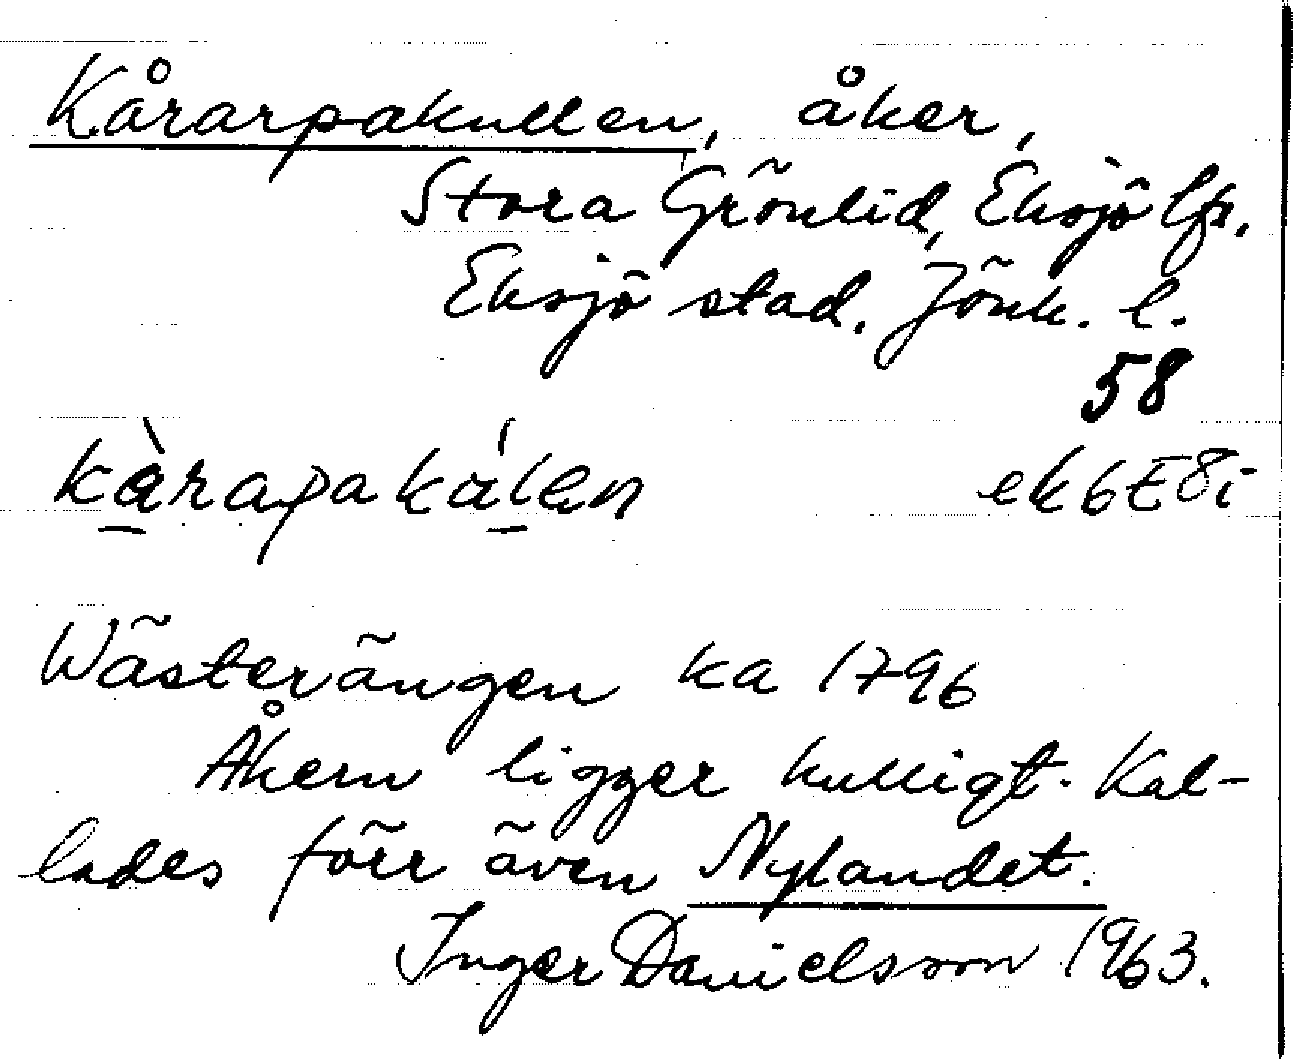 Kårarpakullen, åker,
Stora Grönlid, Eksjö lfs.
Eksjö stad. Jönk. l.
58
kàrapakúlen ek6E8i
Wästerängen ka 1796
Åkern ligger kulligt. Kal-
lades förr även Nylandet.
Inger Danielsson 1963.